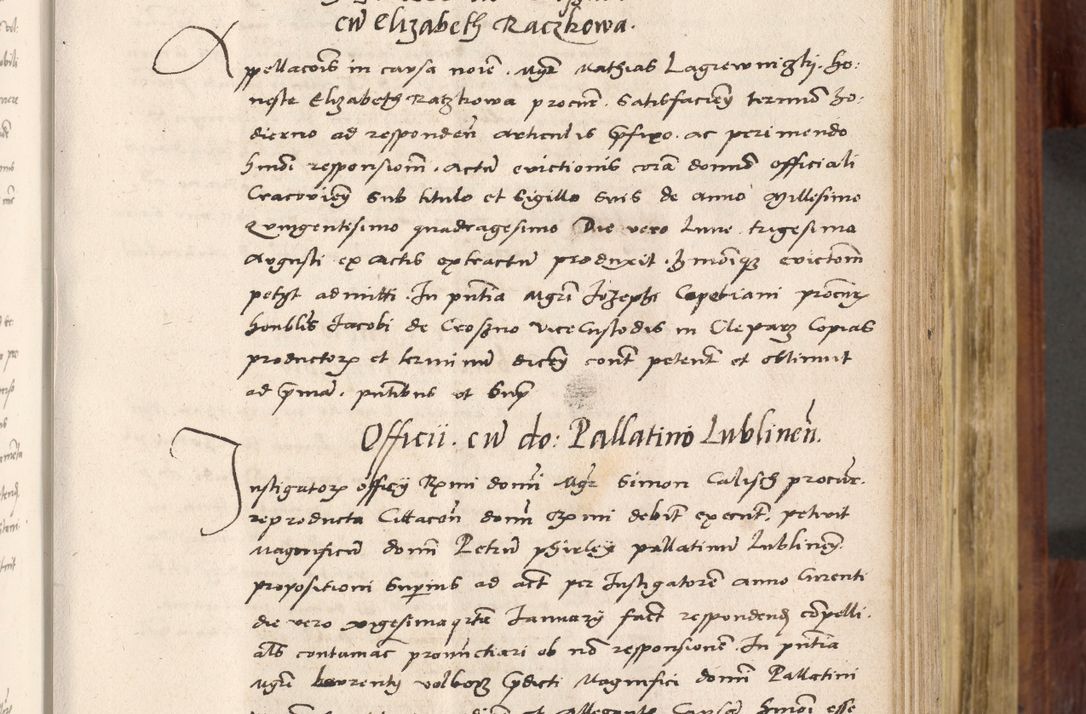 cum Elizabeth Raczkowa.
Appellacois in causa noie. Mgr Mathias Lagrewniczki. ho:
neste Elizabeth Raczkowa procur. Satisfaciens termino ho:
dierno ad responden articulis pfixo. ac perimendo
hmoi responsiom. Actu evictionis cora domino officiali
Cracovien sub titulo et Sigillo suis de anno Millesimo
quingentesimo quadragesimo Die vero lune. trigesima
Augusti ex actis extractu produxit. hmoiq evictom
petyt admitti. In pntia Mgri Jozephi procur
honblis Jacobi de Croszno vice Custodis in Cleparz Copias
productorz et terminu dicen cont petent et obtinuit
ad pmam. pntibus ut Supr
Officii. cu do: Pallatino Lublinen.
Instigatorz officy Rmi domini Mgr Simon Calisch procur.
reproducta Cittacon domi Rmi debit execut. petivit
Magnificu domi Petru phirley pallatinu Lublinen
propositioni Superius ad act per Instigatore anno Curenti
die vero vigesima qrta January fact respondend compelli.
als contumac pronunctiari ob no responsione. In pntia
Mgri laurenty volborz pdicti Magnifici domi Pallatini